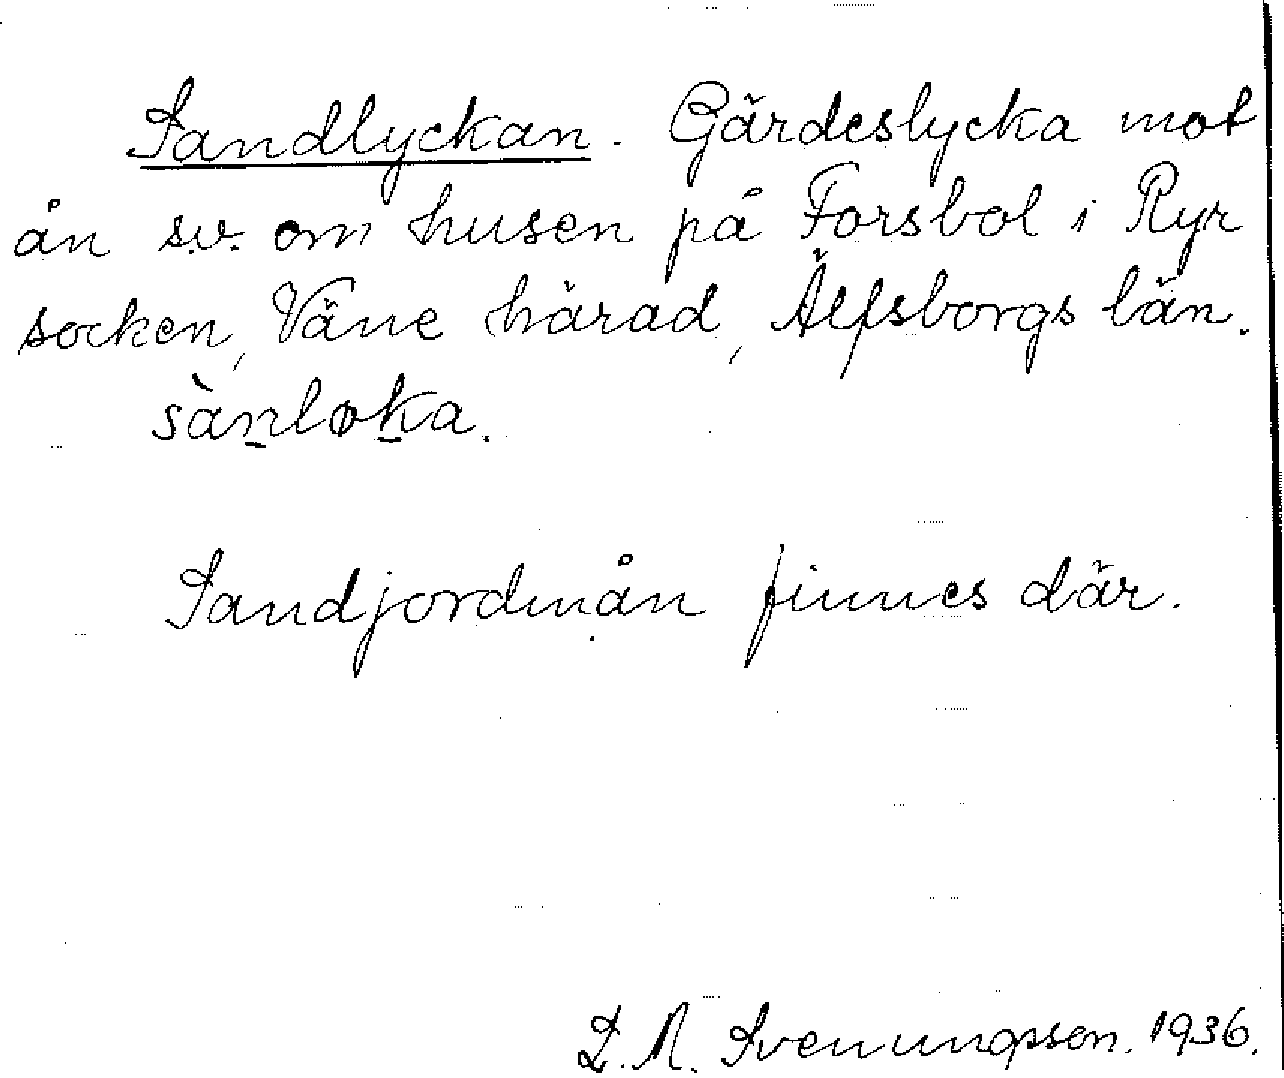 Sandlyckan. Gärdeslycka mot
ån s.v. om husen på Forsbol i Ryr
socken, Väne härad, Älfsborgs län.
sànloka.
Sandjordmån finnes där.
L. M. Svenungsson. 1936.